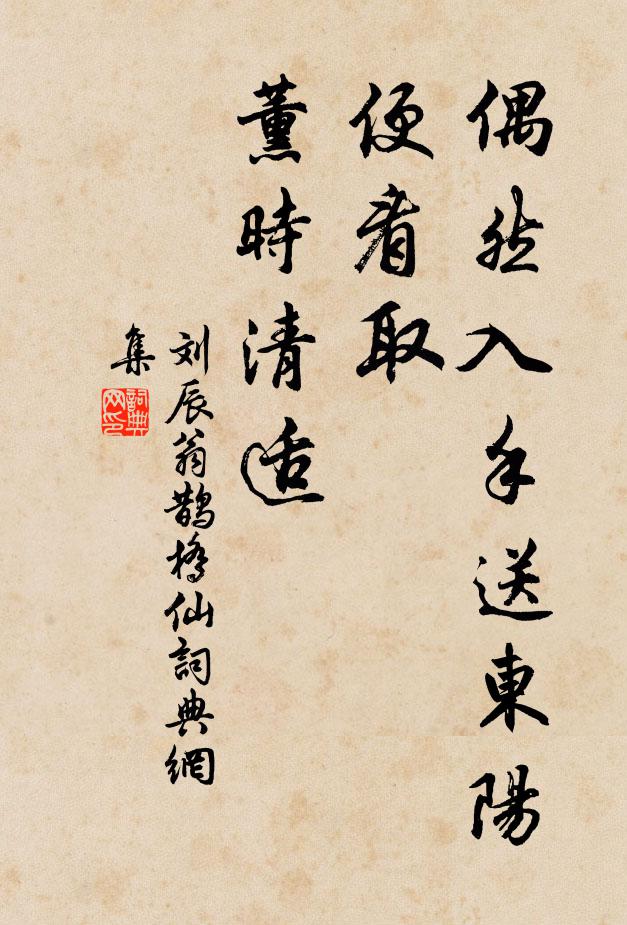 偶然入手送東陽
便看取
薰時清适
刘辰翁鹊橋仙詞典網
集
詞典
网印